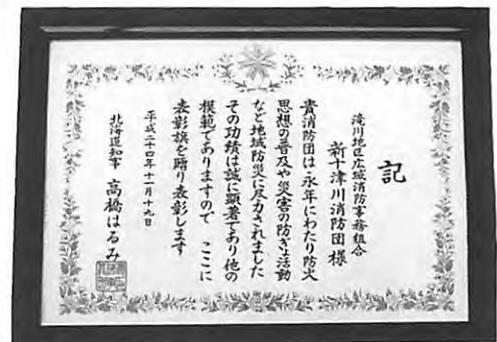 記
滝川地区広域消防事務組合
新十津川消防団 様
貴消防団は永年にわたり防火
思想の普及や災害の防ぎょ活動
など地域防災に尽力されました
その功績は誠に顕著であり他の
模範でありますので ここに
表彰旗を贈り表彰します
平成二十四年十一月十九日
北海道知事 高橋はるみ